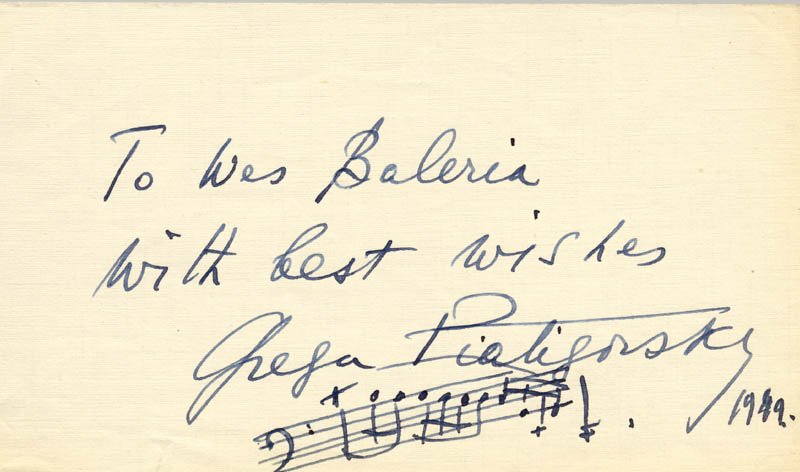 To Wes Baleria
with best wishes
Gregor Piatigorsky